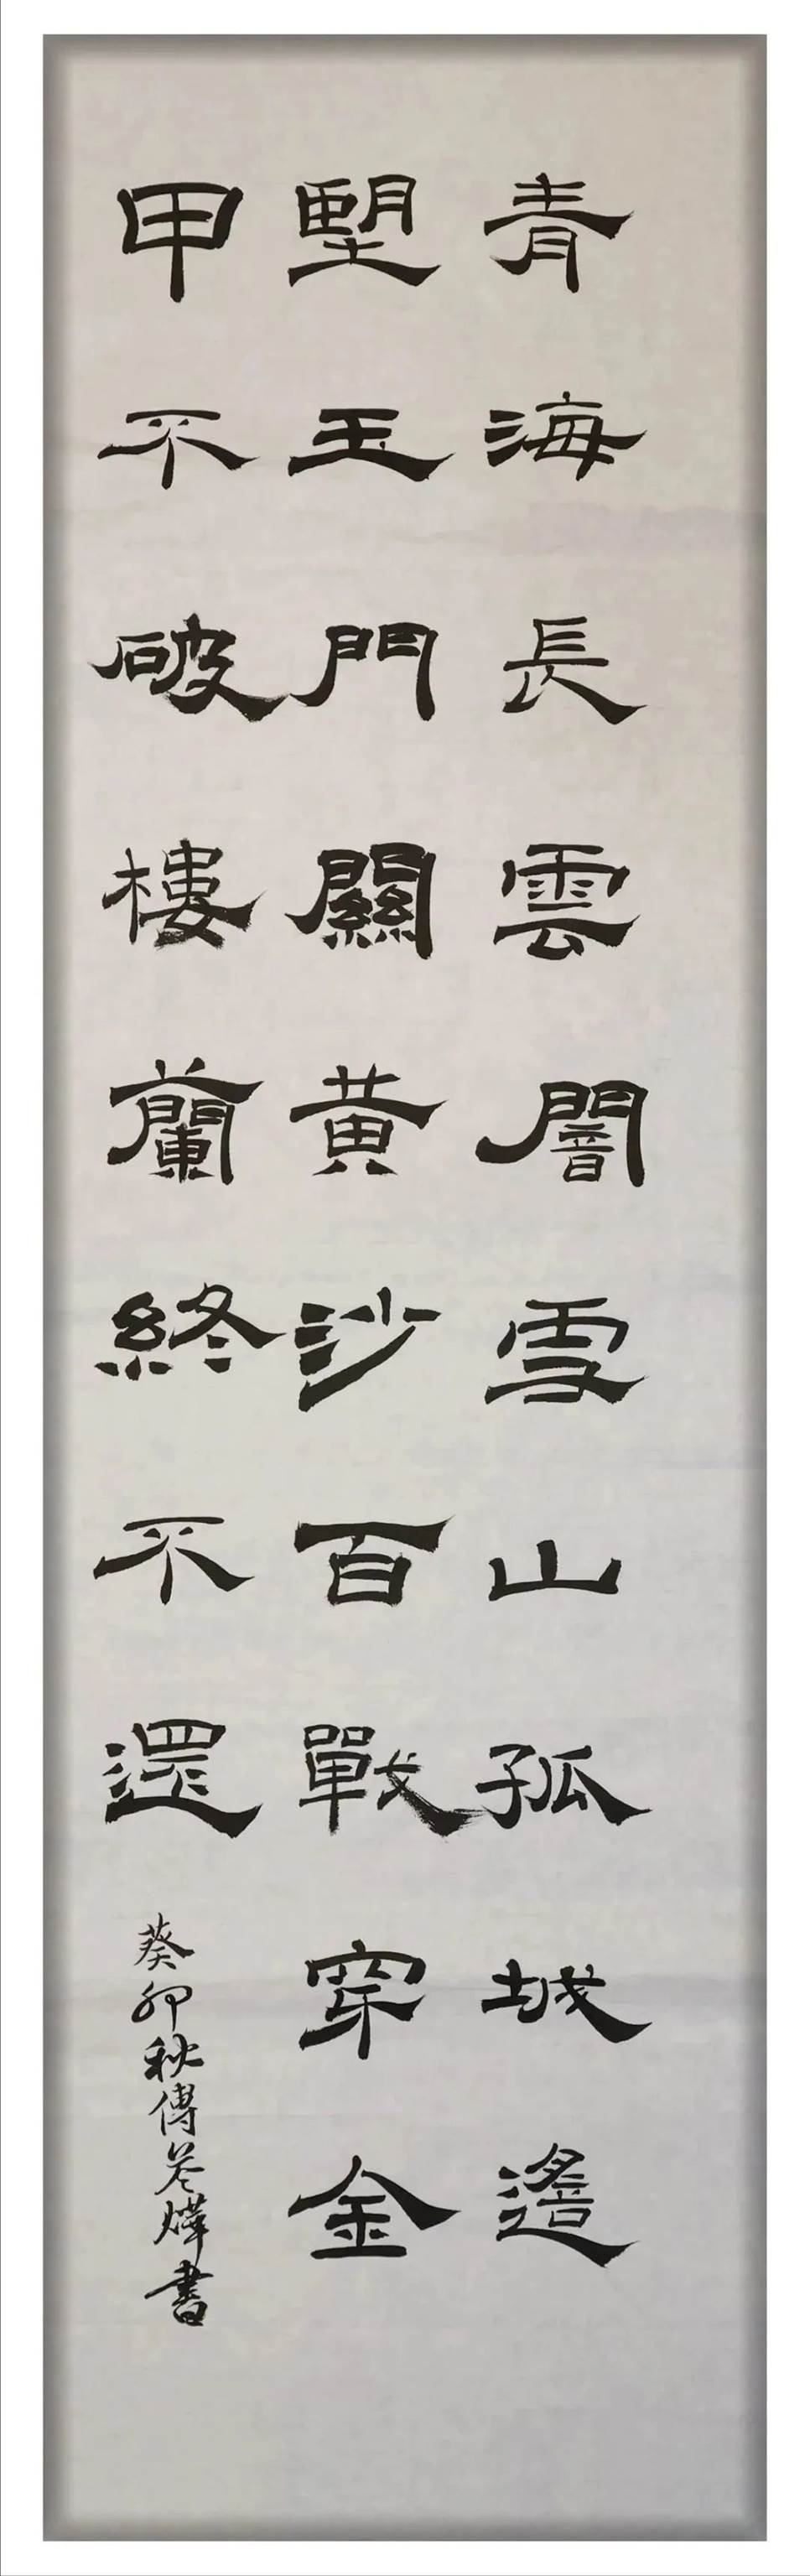 青海長雲闇雪山孤城遙
朢玉門關黄沙百戰穿金
甲不破樓蘭終不還
癸卯秋傅燁書